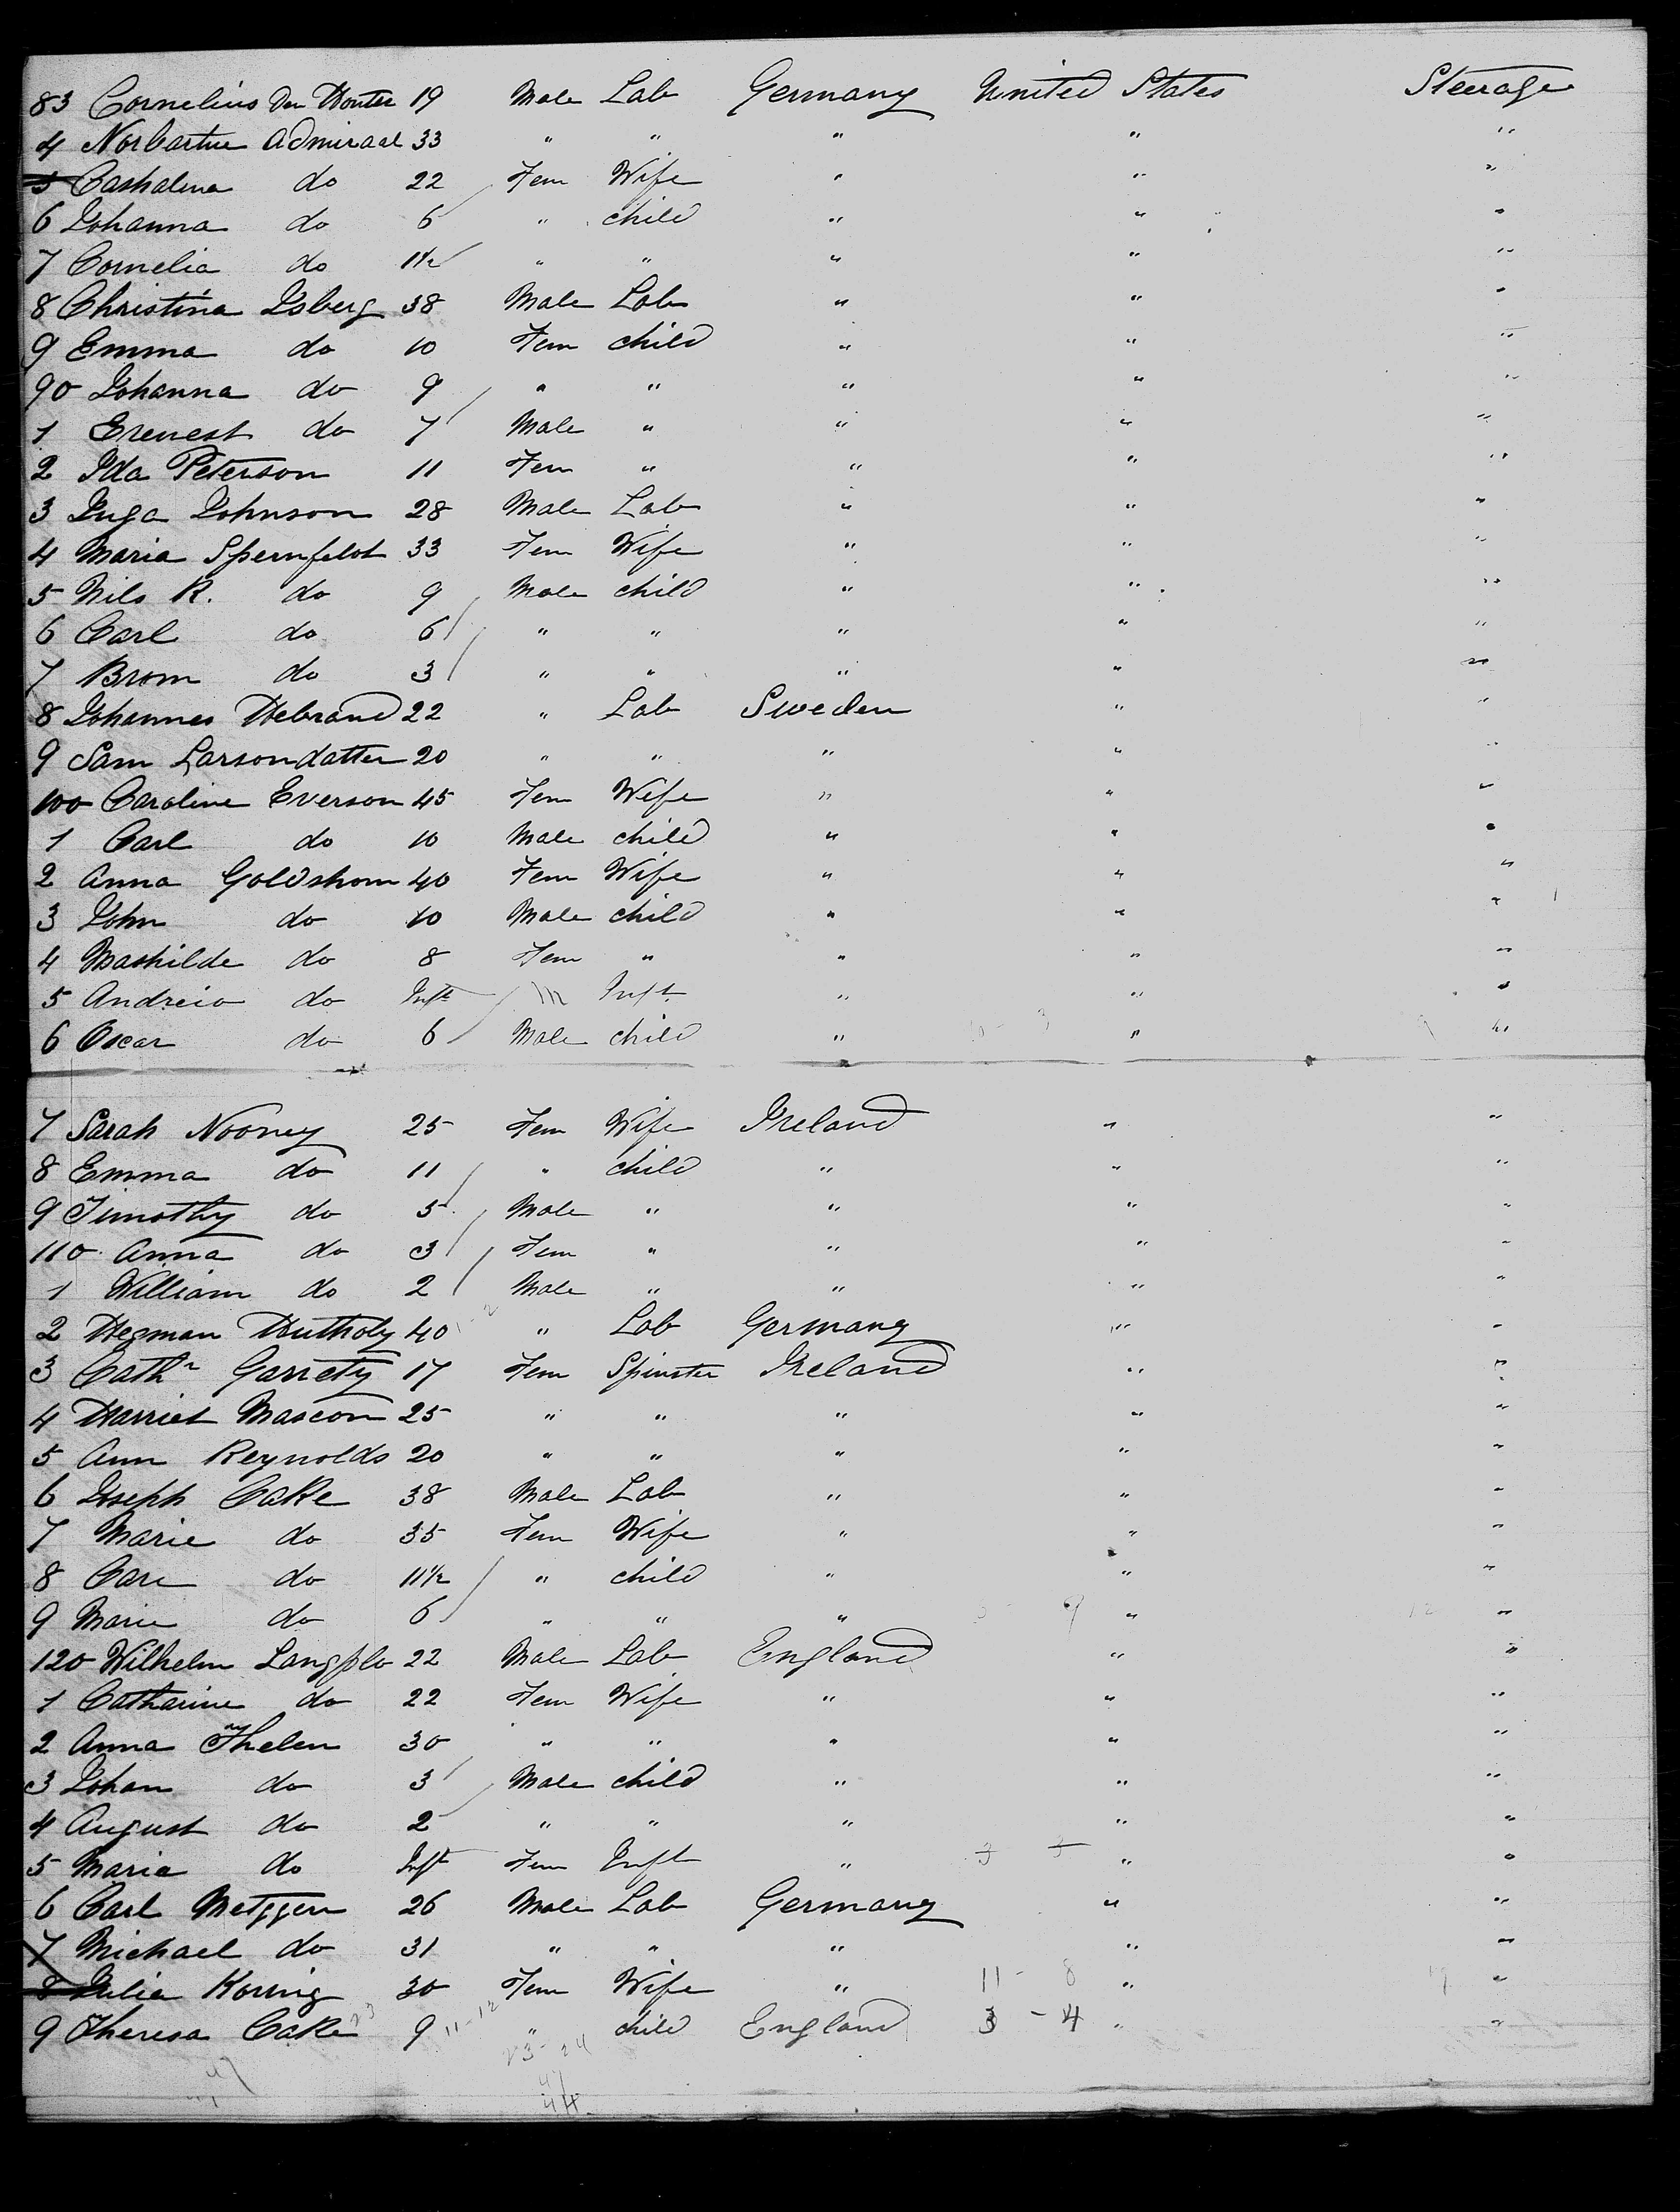 83 Cornelius Den Houter 19 Male Lab Germany United States Steerage
4 Norbartue Admiraal 33 " " " " "
5 Cashalena do 22 Fem Wife " " "
6 Johanna do 6 " child " " "
7 Cornelia do 1½ " " " " "
8 Christina Isberg 38 Male Lab " " "
9 Emma do 10 Fem child " " "
90 Johanna do 9 " " " " "
1 Erenest do 7 Male " " " "
2 Ida Peterson 11 Fem " " " "
3 Inga Johnson 28 Male Lab " " "
4 Maria Spernfeldt 33 Fem Wife " " "
5 Nils R. do 9 Male child " " "
6 Carl do 6 " " " " "
7 Brom do 3 " " " " "
8 Johannes Hebrand 22 " Lab Sweden " "
9 Sam Larsondatter 20 " " " " "
100 Caroline Everson 45 Fem Wife " " "
1 Carl do 10 Male child " " "
2 Anna Goldshom 40 Fem Wife " " "
3 John do 10 Male child " " "
4 Mashilde do 8 Fem " " " "
5 Andreio do Inft M Inft " " "
6 Oscar do 6 Male child " " "
7 Sarah Nooney 25 Fem Wife Ireland " "
8 Emma do 11 " child " " "
9 Timothy do 5 Male " " " "
110 Anna do 3 Fem " " " "
1 William do 2 Male " " " "
2 Hegman Huthoby 40 " Lab Germany " "
3 Cathn Garrety 17 Fem Spinster Ireland " "
4 Harriet Mascon 25 " " " " "
5 Ann Reynolds 20 " " " " "
6 Joseph Cake 38 Male Lab " " "
7 Marie do 35 Fem Wife " " "
8 do 11½ " child " " "
9 Marie do 6 " " " " "
120 Wilhelm Langplo 22 Male Lab England " "
1 Catharine do 22 Fem Wife " " "
2 Anna Thelen 30 " " " " "
3 Johan do 3 Male child " " "
4 August do 2 " " " " "
5 Maria do Inft Fem Inft " 3 3 " "
6 Carl Metggen 26 Male Lab Germany " "
7 Michael do 31 " " " " "
8 Julia Koring 30 Fem Wife " 11 - 8 " "
9 Theresa Cake 23 9 11-12 " child England 3 - 4 " "
23-24
47
44